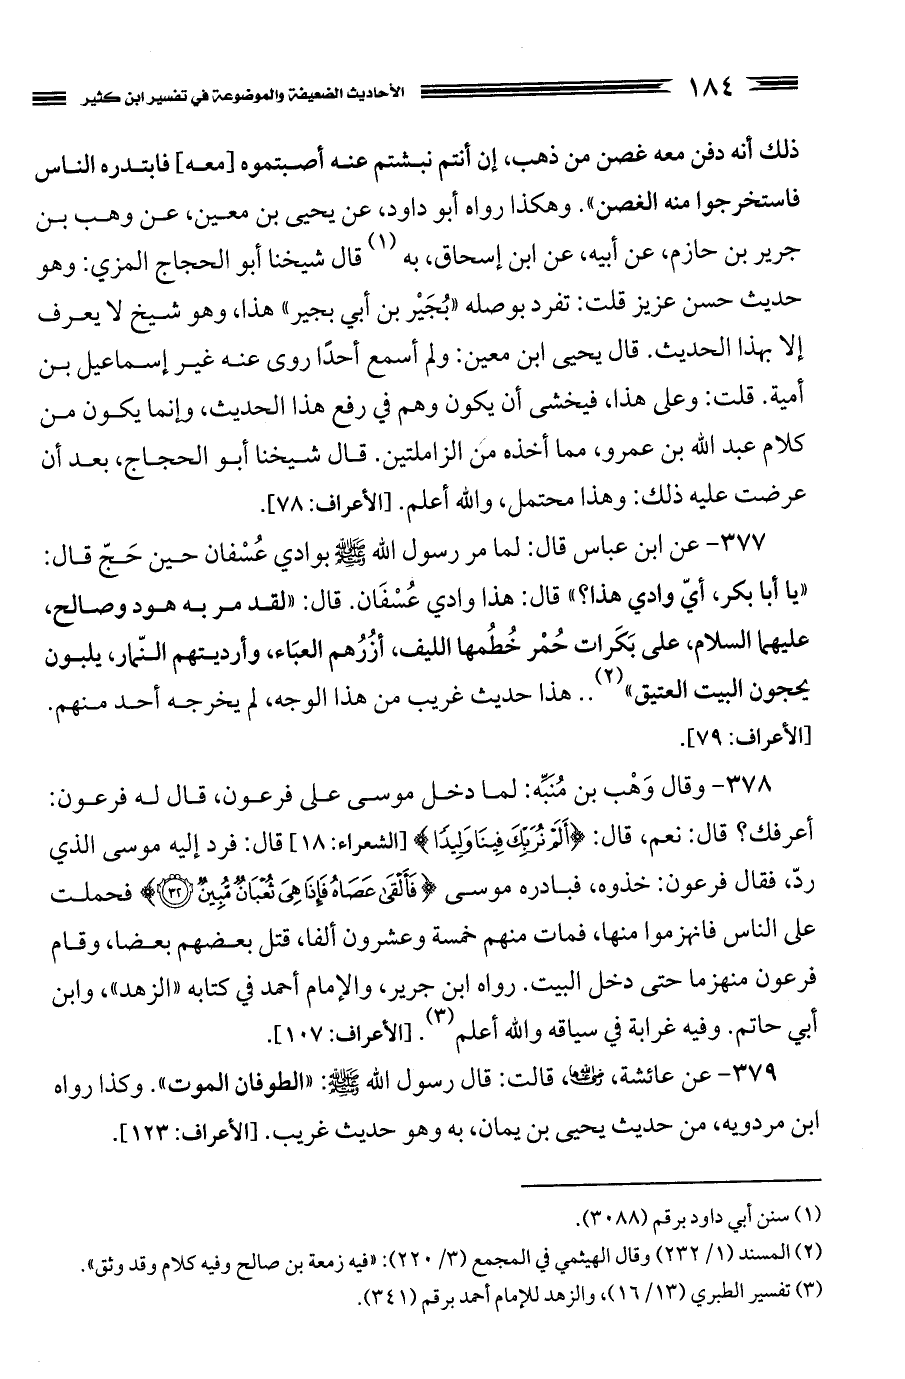 ١٨٤ الأحاديث الضعيفة والموضوعة في تفسير ابن كثير
ذلك أنه دفن معه غصن من ذهب، إن أنتم نبشتم عنه أصبتموه [معه] فابتدره الناس
فاستخرجوا منه الغصن». وهكذا رواه أبو داود، عن يحيى بن معين، عن وهب بن
جرير بن حازم، عن أبيه، عن ابن إسحاق، به (١) قال شيخنا أبو الحجاج المزي: وهو
حديث حسن عزيز قلت: تفرد بوصله «بُجَيْر بن أبي بجير» هذا، وهو شيخ لا يعرف
إلا بهذا الحديث. قال يحيى ابن معين: ولم أسمع أحدًا روى عنه غير إسماعيل بن
أمية. قلت: وعلى هذا، فيخشى أن يكون وهم في رفع هذا الحديث، وإنما يكون من
كلام عبد الله بن عمرو، مما أخذه من الزاملتين. قال شيخنا أبو الحجاج، بعد أن
عرضت عليه ذلك: وهذا محتمل، والله أعلم. [الأعراف: ٧٨].
٣٧٧- عن ابن عباس قال: لما مر رسول الله ﷺ بوادي عُسْفان حين حَجّ قال:
«يا أبا بكر، أيّ وادي هذا؟» قال: هذا وادي عُسْفَان. قال: «لقد مر به هود وصالح،
عليهما السلام، على بَكَرات حُمْر خُطُمها الليف، أزُرُهم العبَاء، وأرديتهم النّمار، يلبون
يحجون البيت العتيق»(٢).. هذا حديث غريب من هذا الوجه، لم يخرجه أحد منهم.
[الأعراف: ٧٩].
٣٧٨- وقال وَهْب بن مُنَبِّه: لما دخل موسى على فرعون، قال له فرعون:
أعرفك؟ قال: نعم، قال: ﴿أَلَمْ نُرَبِّكَ فِينَا وَلِيدًا﴾ [الشعراء: ١٨] قال: فرد إليه موسى الذي
ردّ، فقال فرعون: خذوه، فبادره موسى ﴿فَأَلْقَىٰ عَصَاهُ فَإِذَا هِىَ ثُعْبَانٌ مُّبِينٌ ٣٢﴾ فحملت
على الناس فانهزموا منها، فمات منهم خمسة وعشرون ألفا، قتل بعضهم بعضا، وقام
فرعون منهزما حتى دخل البيت. رواه ابن جرير، والإمام أحمد في كتابه «الزهد»، وابن
أبي حاتم. وفيه غرابة في سياقه والله أعلم(٣). [الأعراف: ١٠٧].
٣٧٩- عن عائشة، رضي الله عنها، قالت: قال رسول الله ﷺ: «الطوفان الموت». وكذا رواه
ابن مردويه، من حديث يحيى بن يمان، به وهو حديث غريب. [الأعراف: ١٢٣].
(١) سنن أبي داود برقم (٣٠٨٨).
(٢) المسند (١/ ٢٣٢) وقال الهيثمي في المجمع (٣/ ٢٢٠): «فيه زمعة بن صالح وفيه كلام وقد وثق».
(٣) تفسير الطبري (١٣/ ١٦)، والزهد للإمام أحمد برقم (٣٤١).